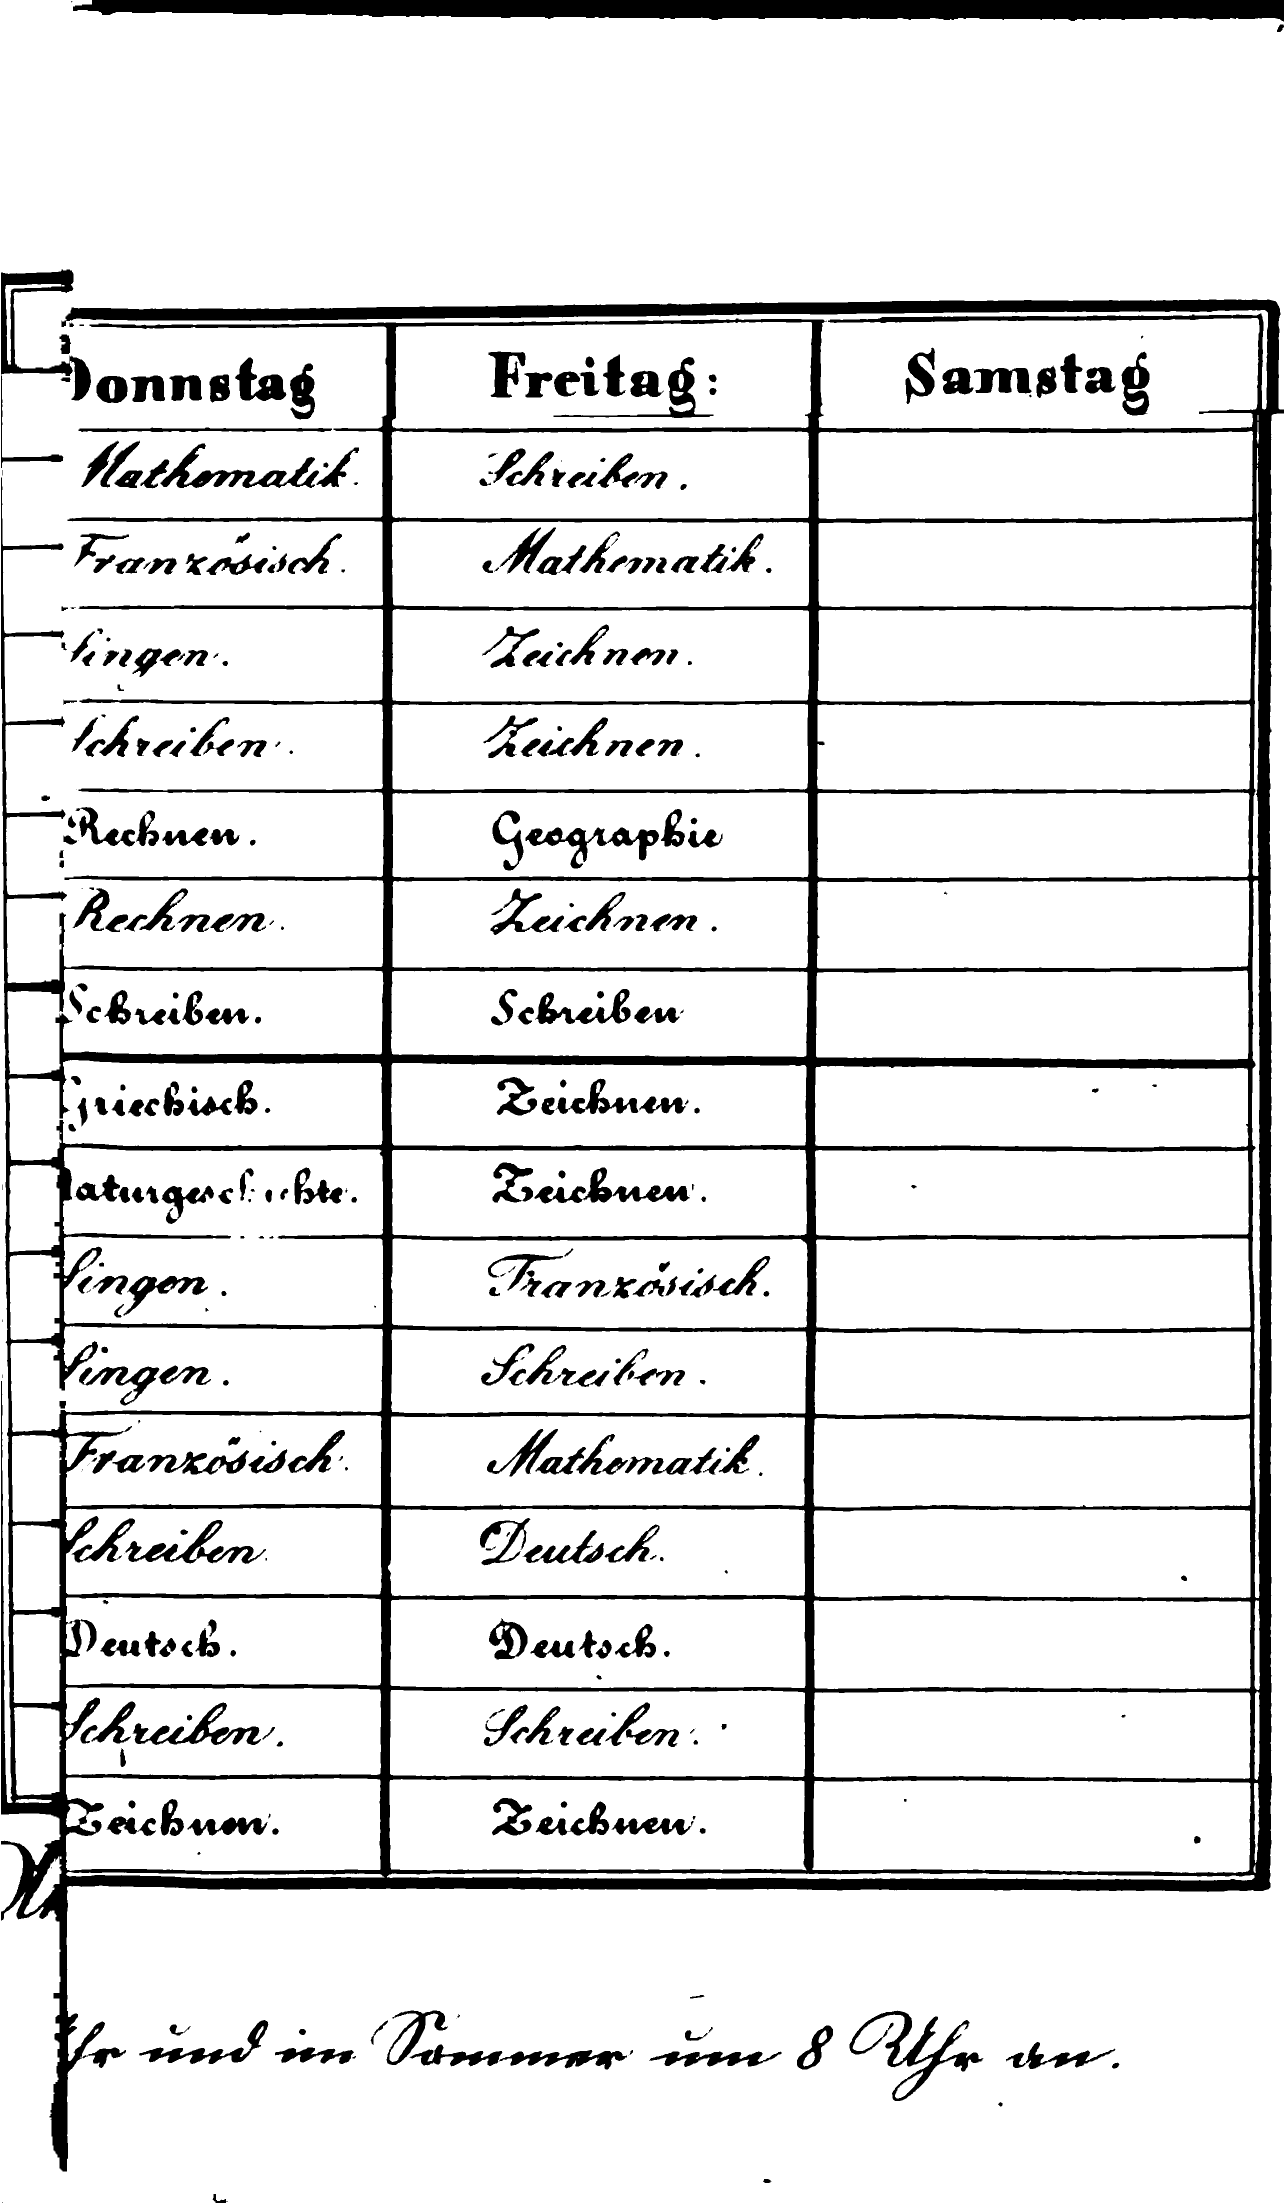 Donnstag Freitag: Samstag
Mathematik. Schreiben.
Französisch. Mathematik.
Singen. Zeichnen.
Schreiben. Zeichnen.
Rechnen. Geographie
Rechnen. Zeichnen.
Schreiben. Schreiben
Griechisch. Zeichnen.
Naturgeschichte. Zeichnen.
Singen. Französisch.
Singen. Schreiben.
Französisch. Mathematik.
Schreiben. Deutsch.
Deutsch. Deutsch.
Schreiben. Schreiben.
Zeichnen. Zeichnen.
Uhr und im Sommer um 8 Uhr an.